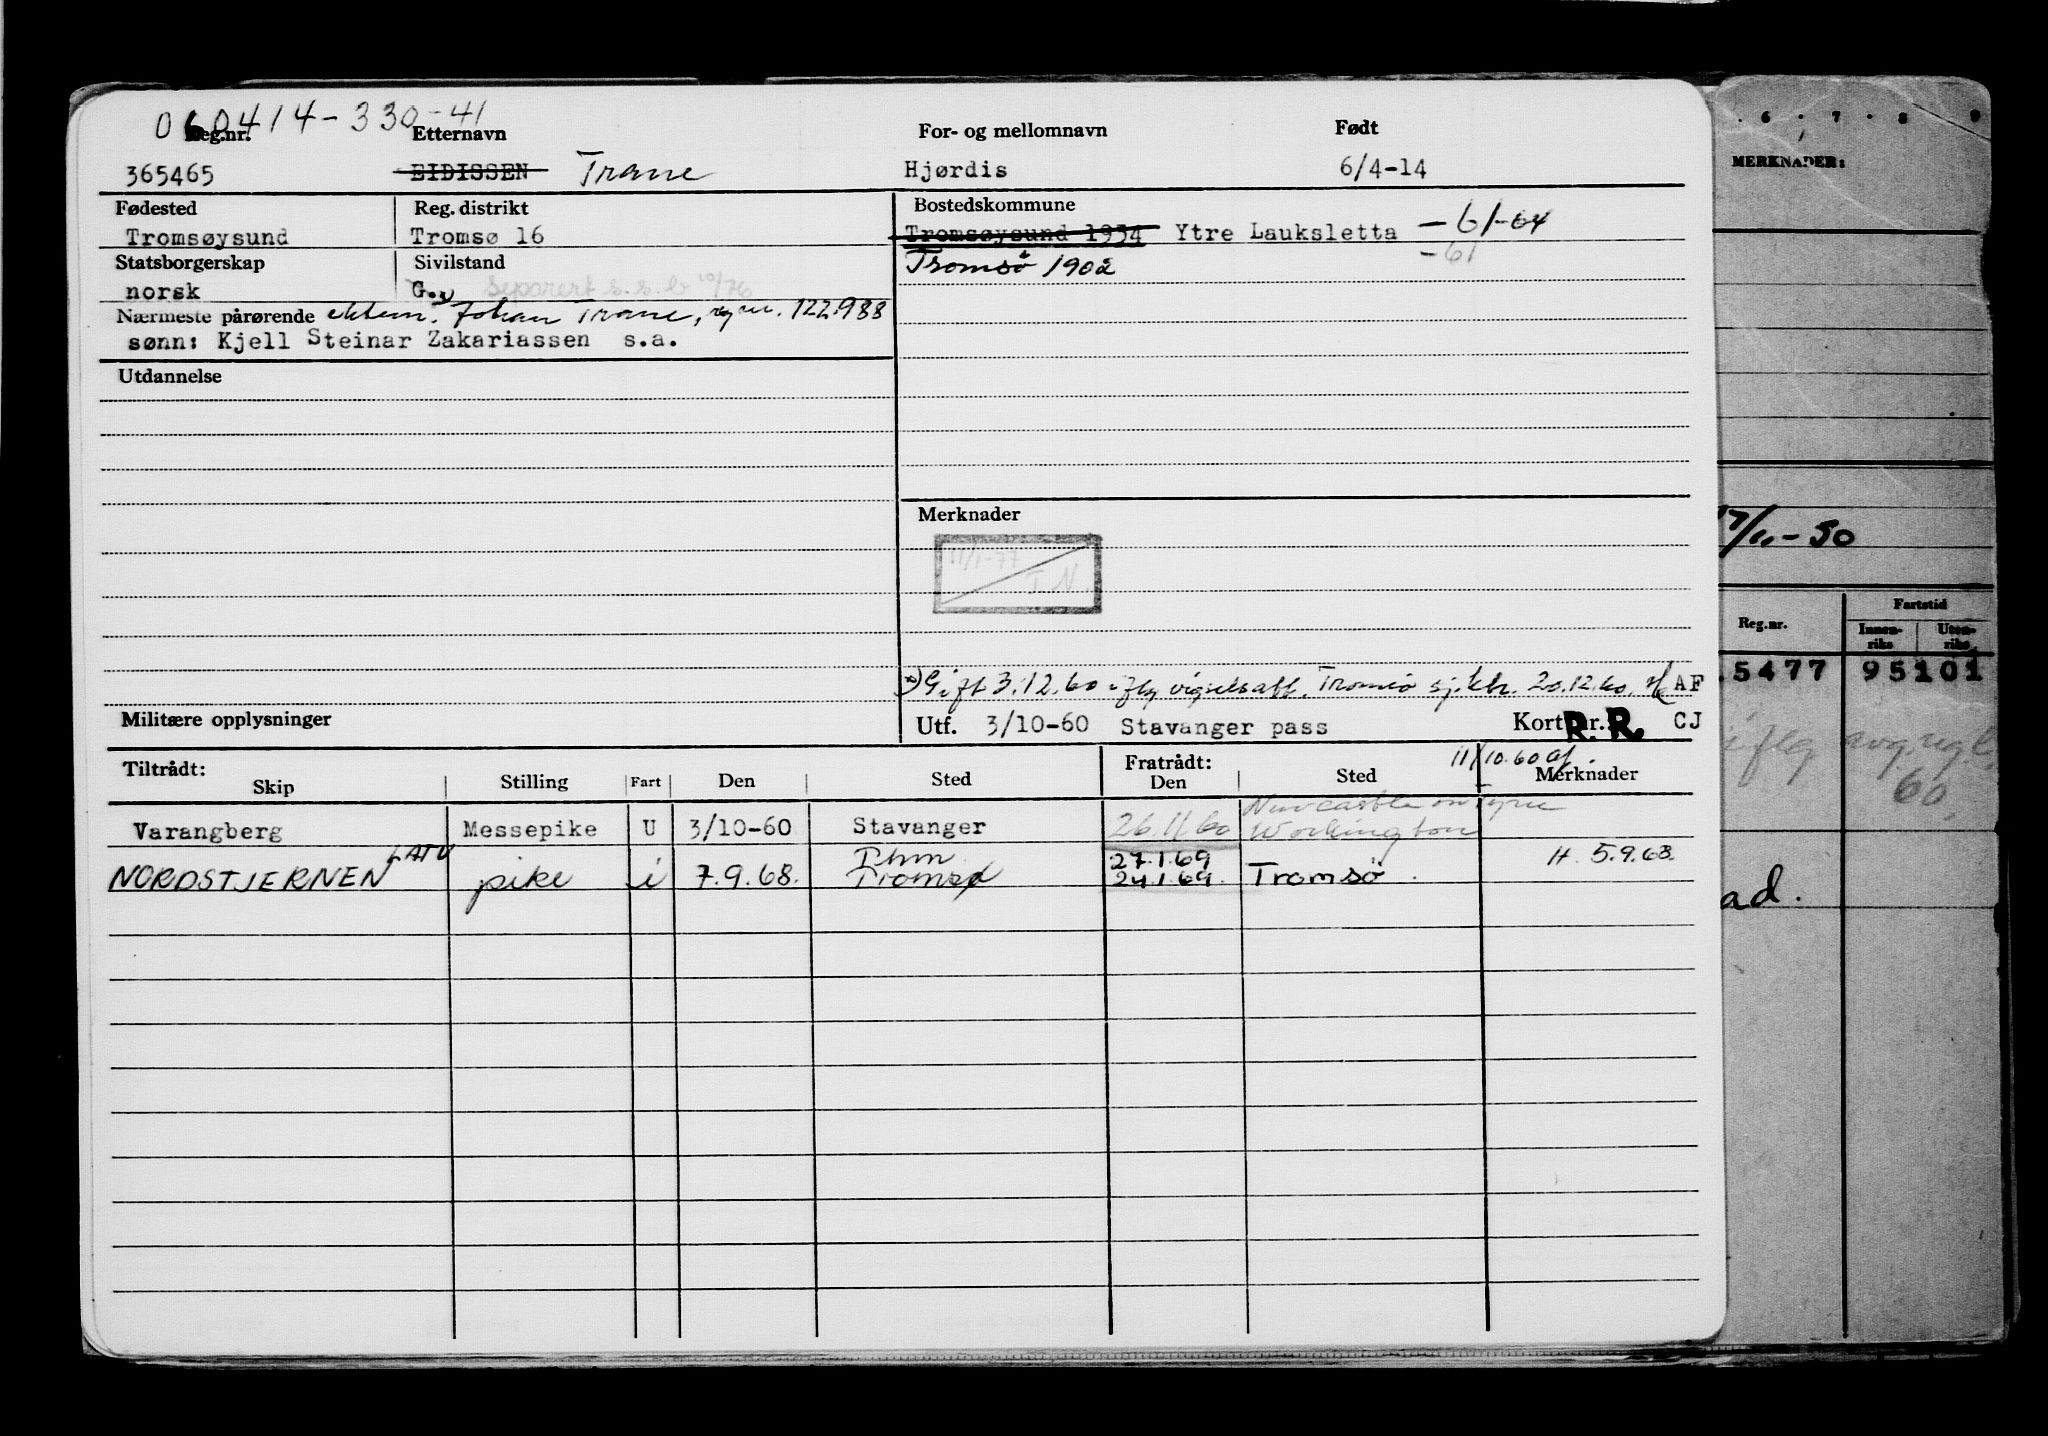 060414-330-41
Reg.nr. Etternavn For- og mellomnavn Født
365465 EIDISSEN Trane Hjørdis 6/4-14
Fødested Reg. distrikt Bostedskommune
Tromsøysund Tromsø 16 Tromsøysund 1934 Ytre Lauksletta -61-64
-61
Statsborgerskap Sivilstand Tromsø 1902
norsk G. x) Separert s.s.b 10/76
Nærmeste pårørende ektem. Johan Trane, reg nr. 122.988
sønn: Kjell Steinar Zakariassen s.a.
Utdannelse
Merknader
11/1-77
I.N.
x) Gift 3.12.60 iflg vigselsatt. Tromsø sj.ktr. 20.12.60. AF
Militære opplysninger
Utf. 3/10-60 Stavanger pass Kort nr. R.R. CJ
11/10.60 af.
Tiltrådt: Fratrådt:
Skip Stilling Fart Den Sted Den Sted Merknader
Newcastle on Tyne
Varangberg Messepike U 3/10-60 Stavanger 26.11.60 Workington
LATU Thm 27.1.69 H. 5.9.68.
NORDSTJERNEN pike i 7.9.68. Tromsø 24.1.69. Tromsø.
6 · 7 · 8 9
MERKNADER:
/11-50
Fartstid
Reg.nr. Innen-riks Uten-riks
5477 95101
iflg
60
ad.